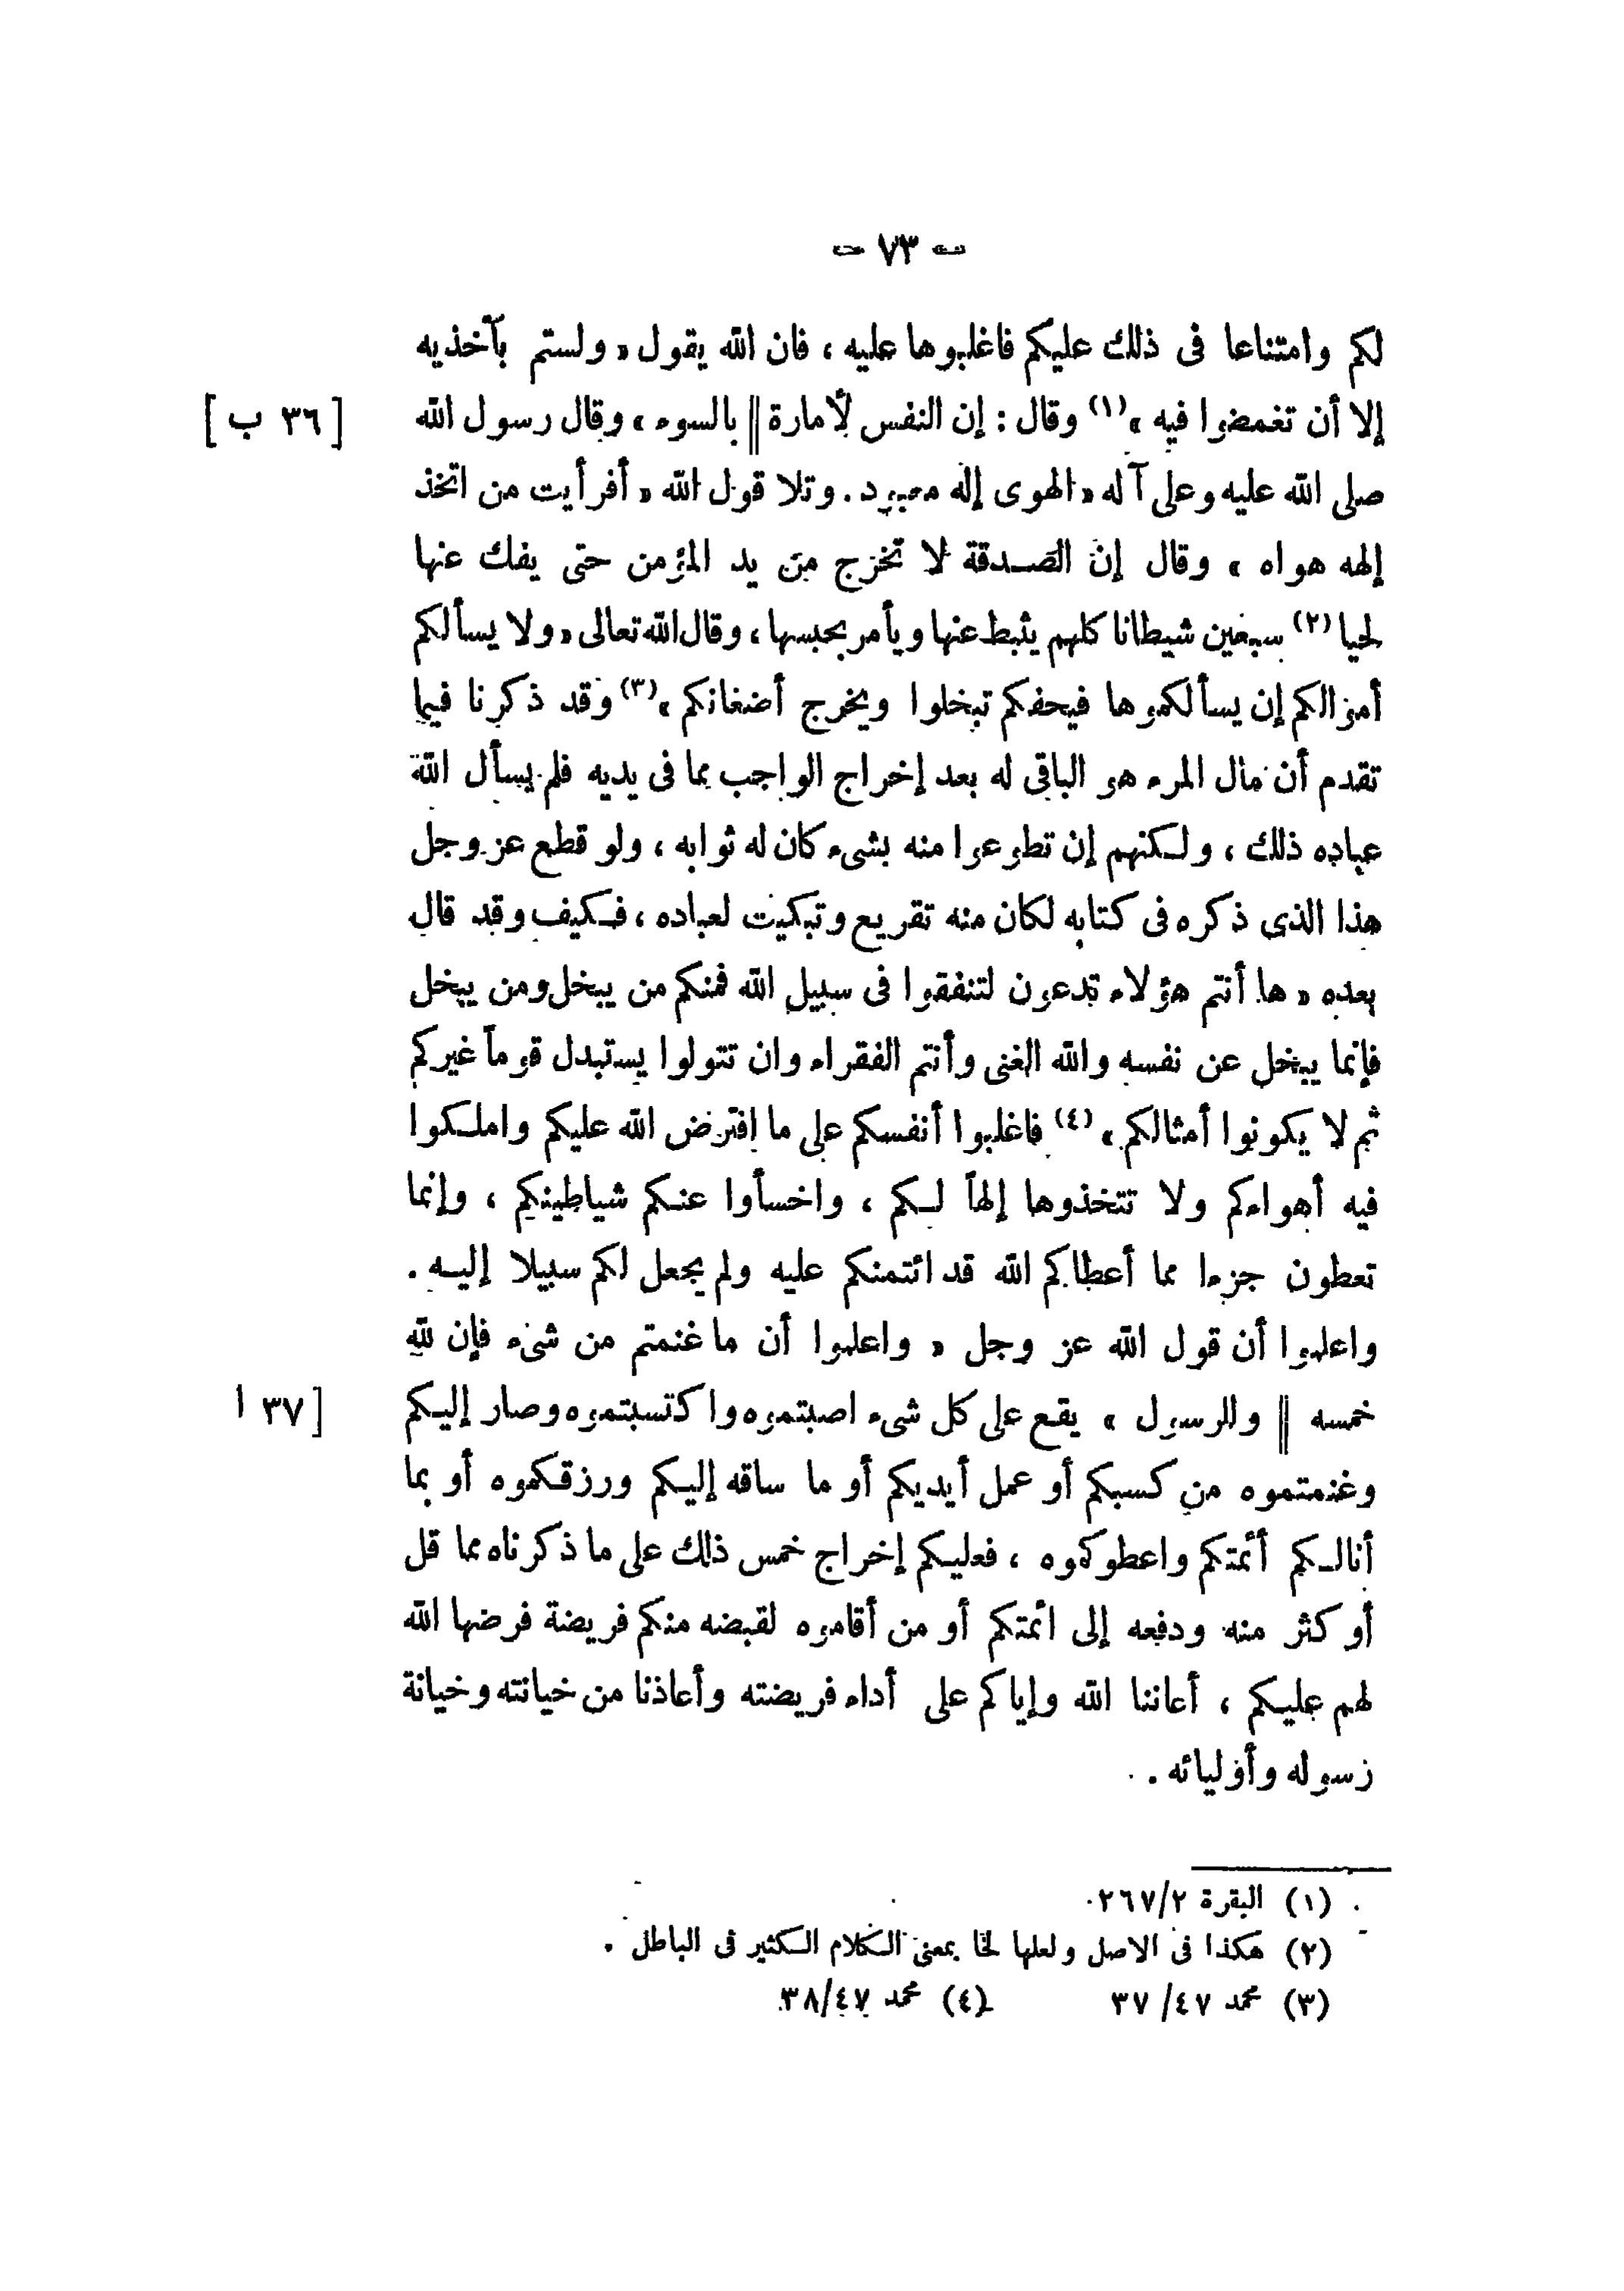 — ٧٣ —
لكم وامتناعا فى ذلك عليكم فاغلبوها عليه ، فان الله يقول « ولستم بآخذيه
إلا أن تغمضوا فيه »(١) وقال : إن النفس لأمارة || بالسوء » وقال رسول الله [ ٣٦ ب ]
صلى الله عليه وعلى آله « الهوى إله معبود . وتلا قول الله « أفرأيت من اتخذ
إلهه هواه » وقال إن الصدقة لا تخرج من يد المؤمن حتى يفك عنها
لحيا (٢) سبعين شيطانا كلهم يثبط عنها ويأمر بحبسها ، وقال الله تعالى « ولا يسألكم
أموالكم إن يسألكموها فيحفكم تبخلوا ويخرج أضغانكم »(٣) وقد ذكرنا فيما
تقدم أن مال المرء هو الباقى له بعد إخراج الواجب مما فى يديه فلم يسأل الله
عباده ذلك ، ولكنهم إن تطوعوا منه بشىء كان له ثوابه ، ولو قطع عز وجل
هذا الذى ذكره فى كتابه لكان منه تقريع وتبكيت لعباده ، فكيف وقد قال
بعده « ها أنتم هؤلاء تدعون لتنفقوا فى سبيل الله فمنكم من يبخل ومن يبخل
فإنما يبخل عن نفسه والله الغنى وأنتم الفقراء وان تتولوا يستبدل قوماً غيركم
ثم لا يكونوا أمثالكم » (٤) فاغلبوا أنفسكم على ما افترض الله عليكم واملكوا
فيه أهواءكم ولا تتخذوها إلهاً لكم ، واخسأوا عنكم شياطينكم ، وإنما
تعطون جزءا مما أعطاكم الله قد ائتمنكم عليه ولم يجعل لكم سبيلا إليه .
واعلموا أن قول الله عز وجل « واعلموا أن ما غنمتم من شىء فإن لله
خمسه || وللرسول » يقع على كل شىء اصبتموه واكتسبتموه وصار إليكم [ ٣٧ ا
وغنمتموه من كسبكم أو عمل أيديكم أو ما ساقه إليكم ورزقكموه أو بما
أنالكم أئمتكم واعطوكموه ، فعليكم إخراج خمس ذلك على ما ذكرناه مما قل
أو كثر منه ودفعه إلى ائمتكم أو من أقاموه لقبضه منكم فريضة فرضها الله
لهم عليكم ، أعاننا الله وإياكم على أداء فريضته وأعاذنا من خيانته وخيانة
رسوله وأوليائه .
(١) البقرة ٢٦٧/٢
(٢) هكذا فى الاصل ولعلها لخا بمعنى الكلام الكثير فى الباطل .
(٣) محمد ٤٧/ ٣٧ (٤) محمد ٣٨/٤٧